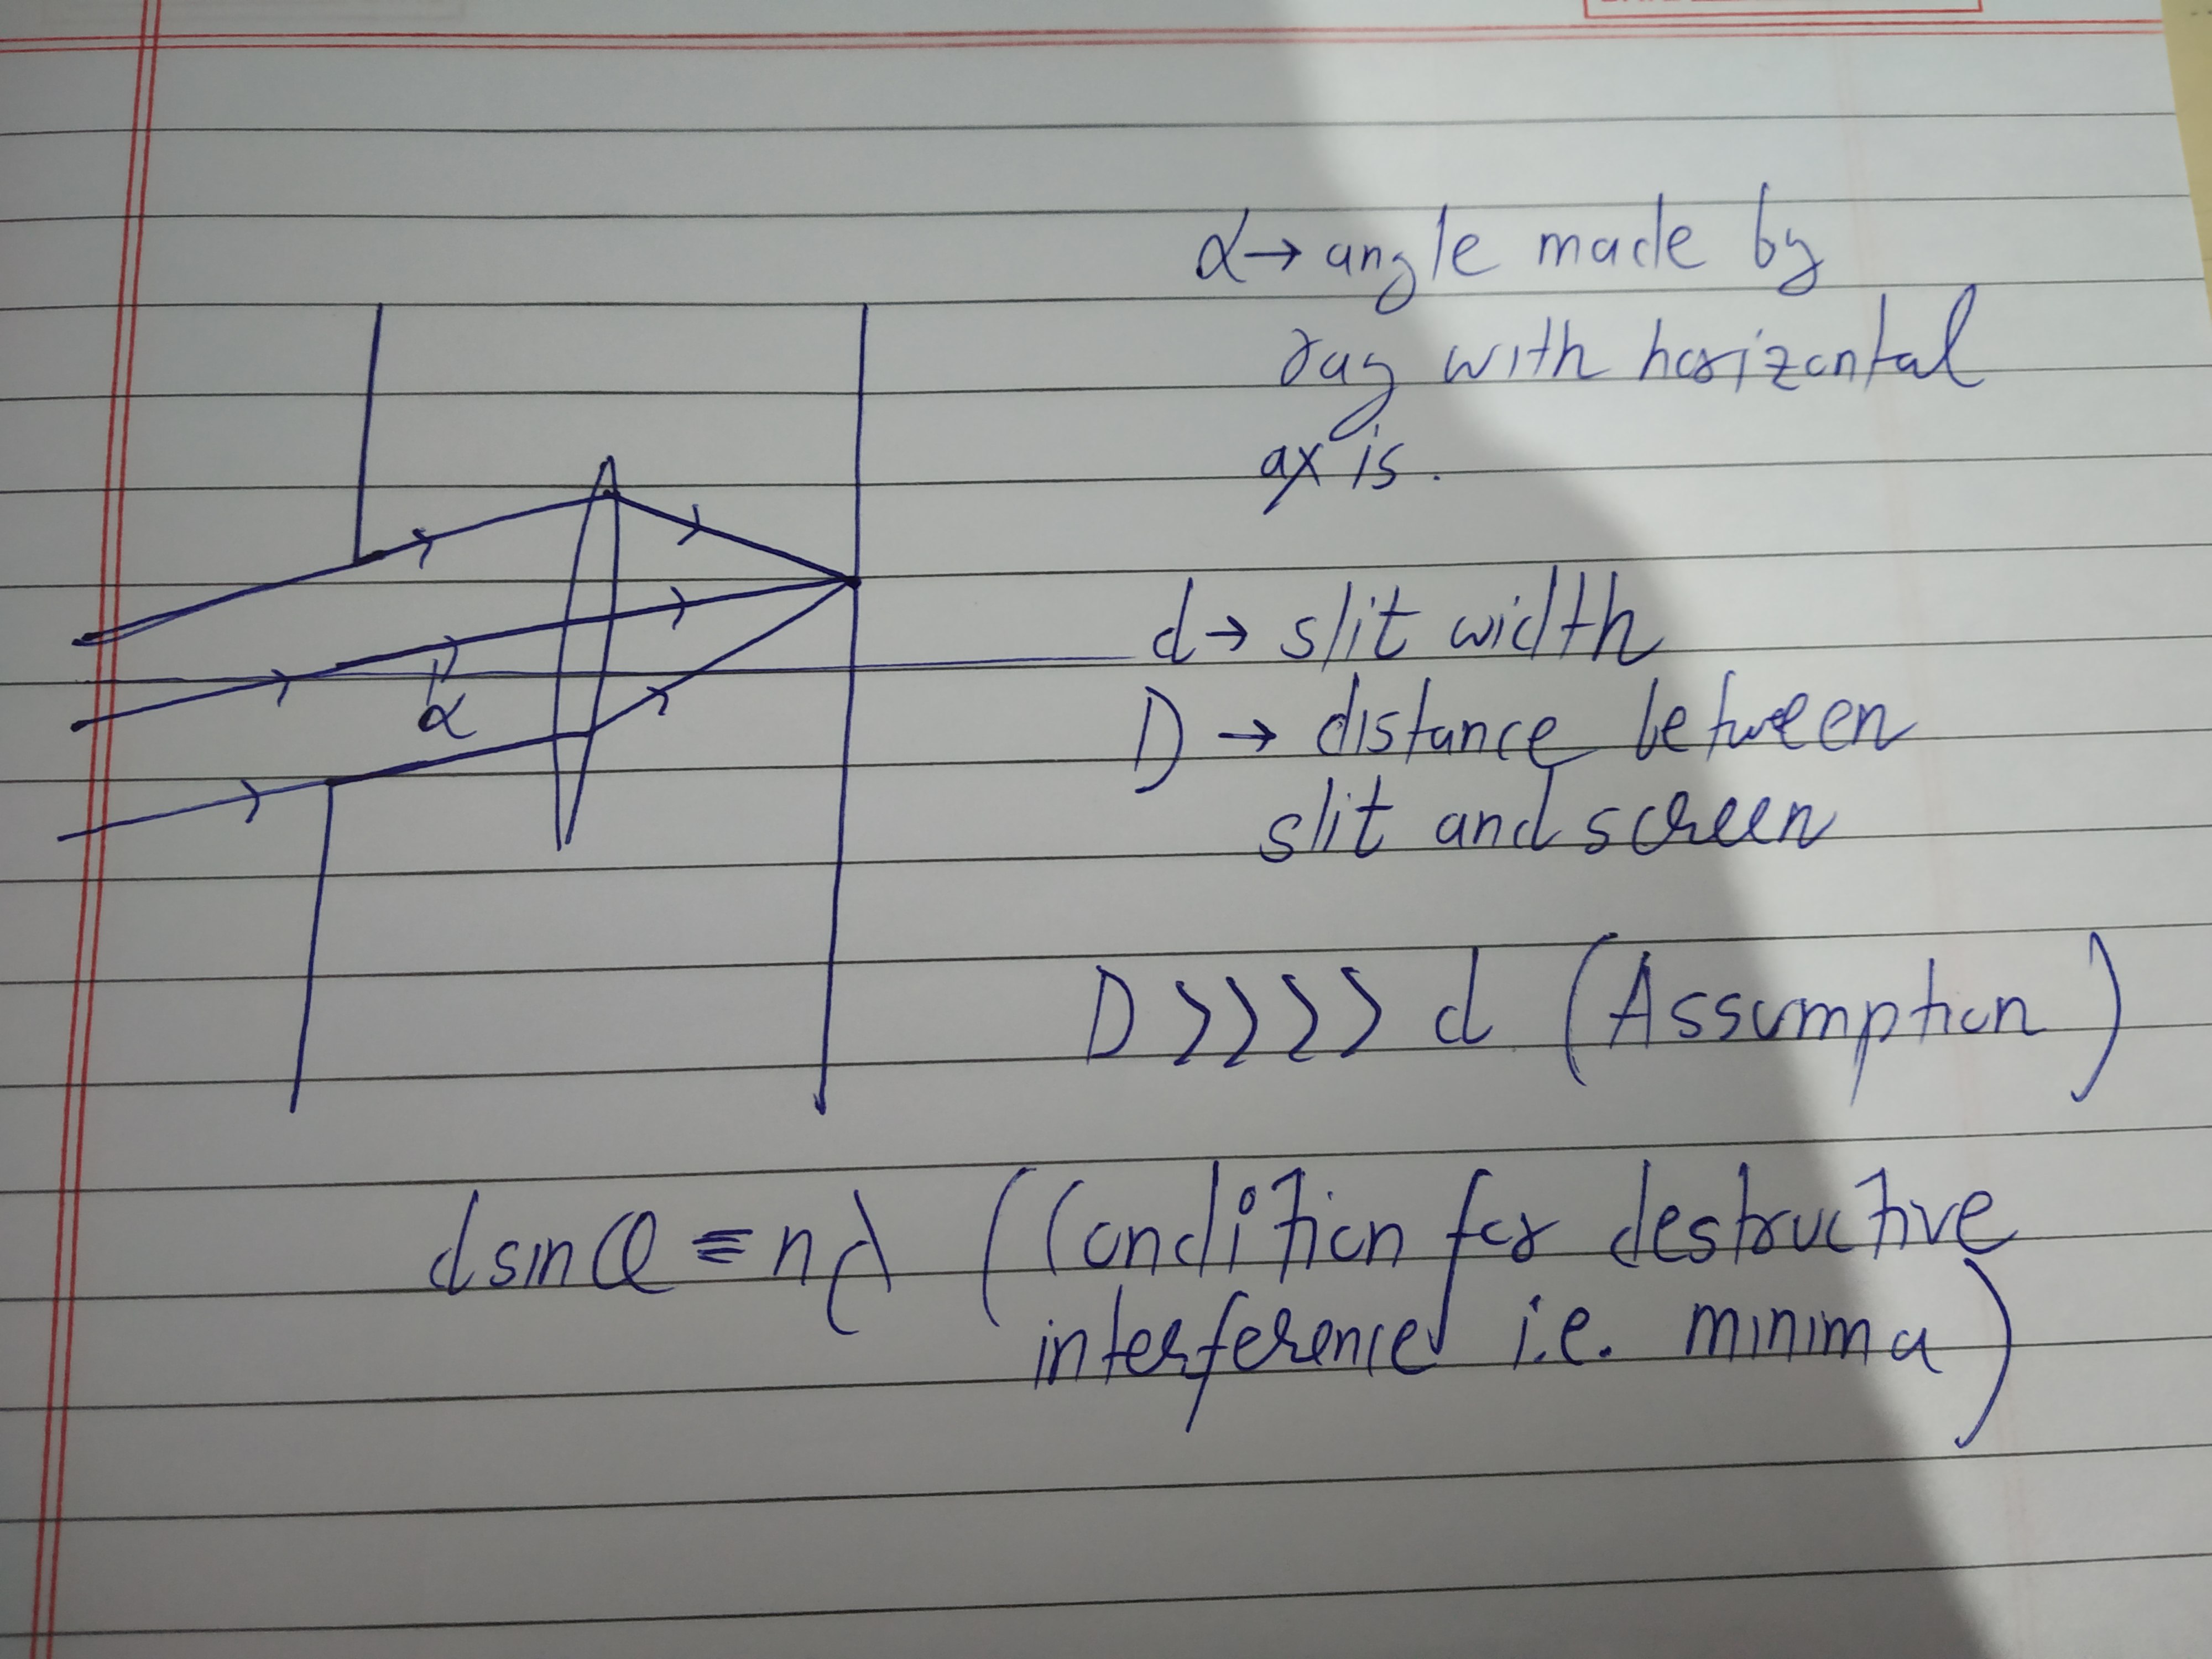 α→ angle made by
ray with horizontal
axis.
α
d→ slit width
D → distance between
slit and screen
D >>>> d (Assumption)
dsinα = nλ (Condition for destructive
interference i.e. minima)